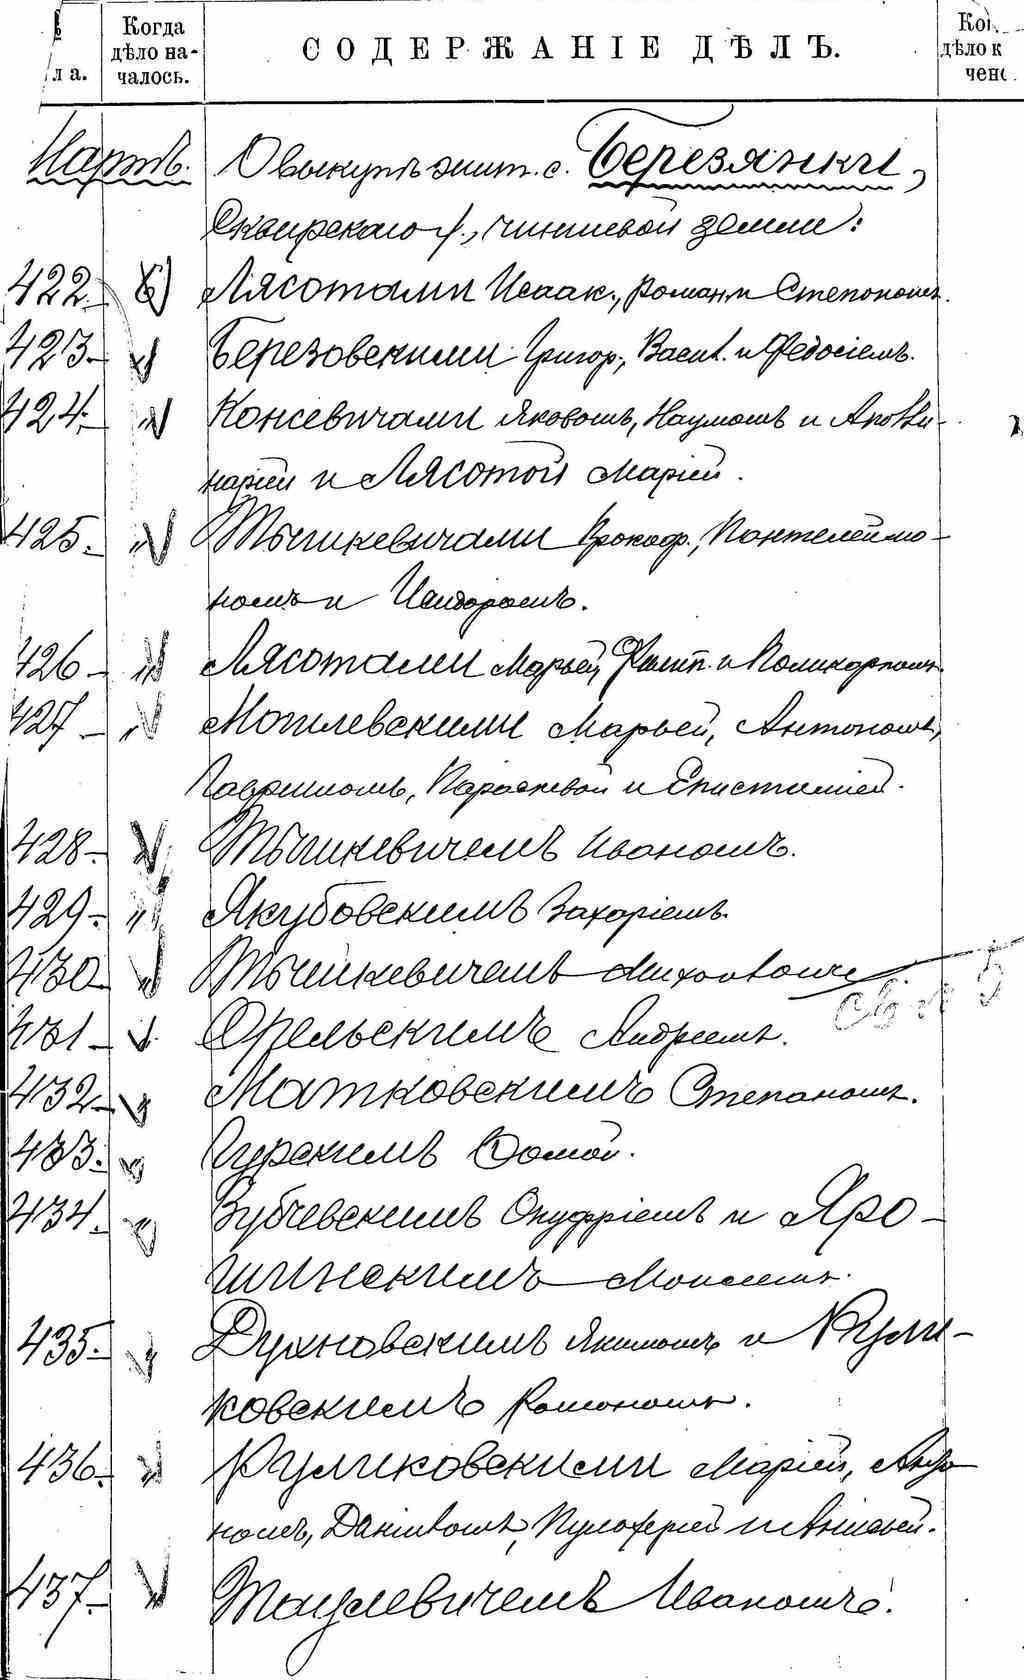 Когда
дѣло на-
ла. чалось.
СОДЕРЖАНІЕ ДѢЛЪ.
дѣло к
чено
Мартъ. О выкупѣ жит. с. Березянки,
Сквирскаго у., чиншевой земли:
422. Лясотами Исаак., Роман. и Степаномъ.
423. Березовскими Григор., Васил. и Федосіемъ.
424. Консевичами Яковомъ, Наумомъ и Аполли-
наріей и Лясотой Маріей.
425. " Тышкевичами Прокоф., Пантелеймо-
номъ и Исидоромъ.
426 " Лясотами Марьей, Филип. и Поликарпомъ.
427 " Могилевскими Марьей, Антономъ,
Гавриломъ, Параскевой и Епистиміей.
428 " Тышкевичемъ Иваномъ.
429 " Якубовскимъ Захаріемъ.
430 " Тышкевичемъ Михаиломъ
431 " Орельскимъ Андреемъ.
432 " Матковскимъ Степаномъ.
433. " Гурскимъ Фомой.
434. " Зубчевскимъ Онуфріемъ и Яро-
шинскимъ Моисеемъ.
435. " Духновскимъ Якимомъ и Кули-
ковскимъ Романомъ.
436. " Куликовскими Маріей, Анто-
номъ, Даніиломъ,
437. " Тацлевичемъ Иваномъ.